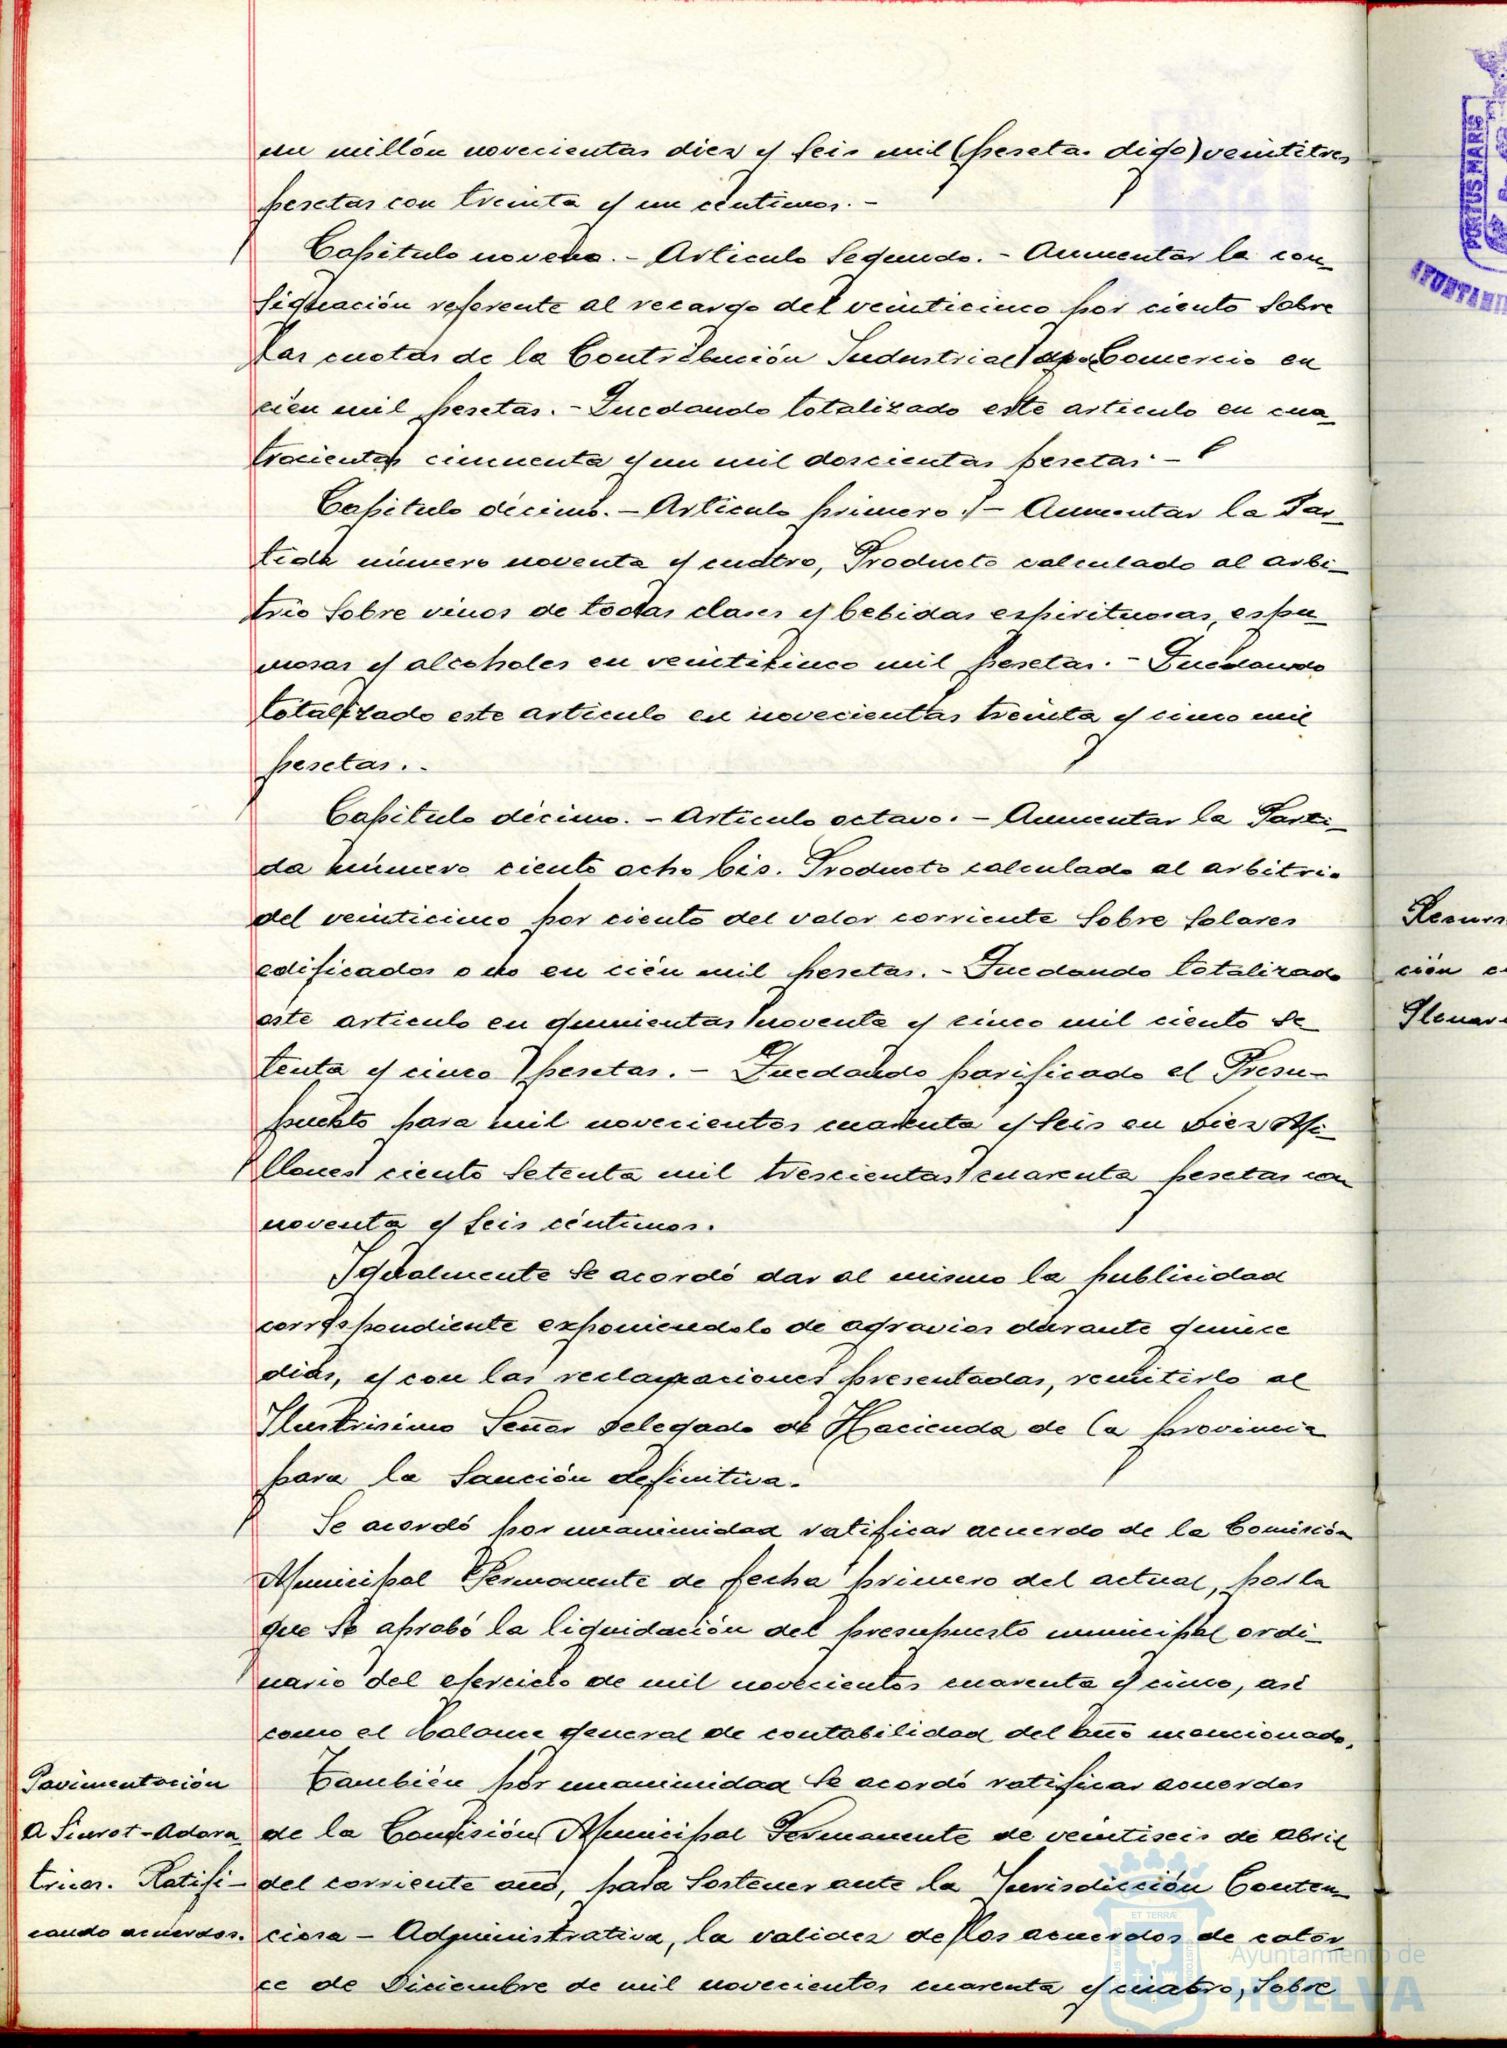 un millón novecientas diez y seis mil (peseta. digo) veintitres
pesetas con treinta y un céntimos.-
Capitulo noveno.- Articulo Segundo.- Aumentar la con-
signación referente al recargo del veinticinco por ciento sobre
las cuotas de la Contribución Industrial Comercio en
cién mil pesetas.- Quedando totalizado este articulo en cua-
trocientas cincuenta y un mil doscientas pesetas.-
Capitulo décimo.- Articulo primero.- Aumentar la Par-
tida número noventa y cuatro, Producto calculado al arbi-
trio sobre vinos de todas clases y bebidas espirituosas, espu-
mosas y alcoholes en veinticinco mil pesetas.- Quedando
totalizado este articulo en novecientas treinta y cinco mil
pesetas..
Capitulo décimo.- Articulo octavo.- Aumentar la Parti-
da número ciento ocho bis. Producto calculado al arbitrio
del veinticinco por ciento del valor corriente sobre solares
edificados o no en cién mil pesetas.- Quedando totalizado
este articulo en quinientas noventa y cinco mil ciento se-
tenta y cinco pesetas.- Quedando parificado el Presu-
puesto para mil novecientos cuarenta y seis en Diez Mi-
llones ciento setenta mil trescientas cuarenta pesetas con
noventa y seis céntimos.
Igualmente se acordó dar al mismo la publicidad
correspondiente exponiendolo de agravios durante quince
dias, y con las reclamaciones presentadas, remitirlo al
Ilustrisimo Señor Delegado de Hacienda de la provincia
para la sanción definitiva.
Se acordó por unanimidad ratificar acuerdo de la Comisión
Municipal Permanente de fecha primero del actual, por la
que se aprobó la liquidación del presupuesto municipal ordi-
nario del ejercicio de mil novecientos cuarenta y cinco, asi
como el balance general de contabilidad del año mencionado.
Pavimentación
A Siurot-Adora-
trices. Ratifi-
cando acuerdos.
También por unanimidad se acordó ratificar acuerdos
de la Comisión Municipal Permanente de veintiseis de abril
del corriente año, para sostener ante la Jurisdicción Conten-
ciosa - Administrativa, la validez de los acuerdos de cator-
ce de Diciembre de mil novecientos cuarenta y cuatro, sobre
PORTUS MARIS
ción
ET TERRÆ
Ayuntamiento de
HUELVA